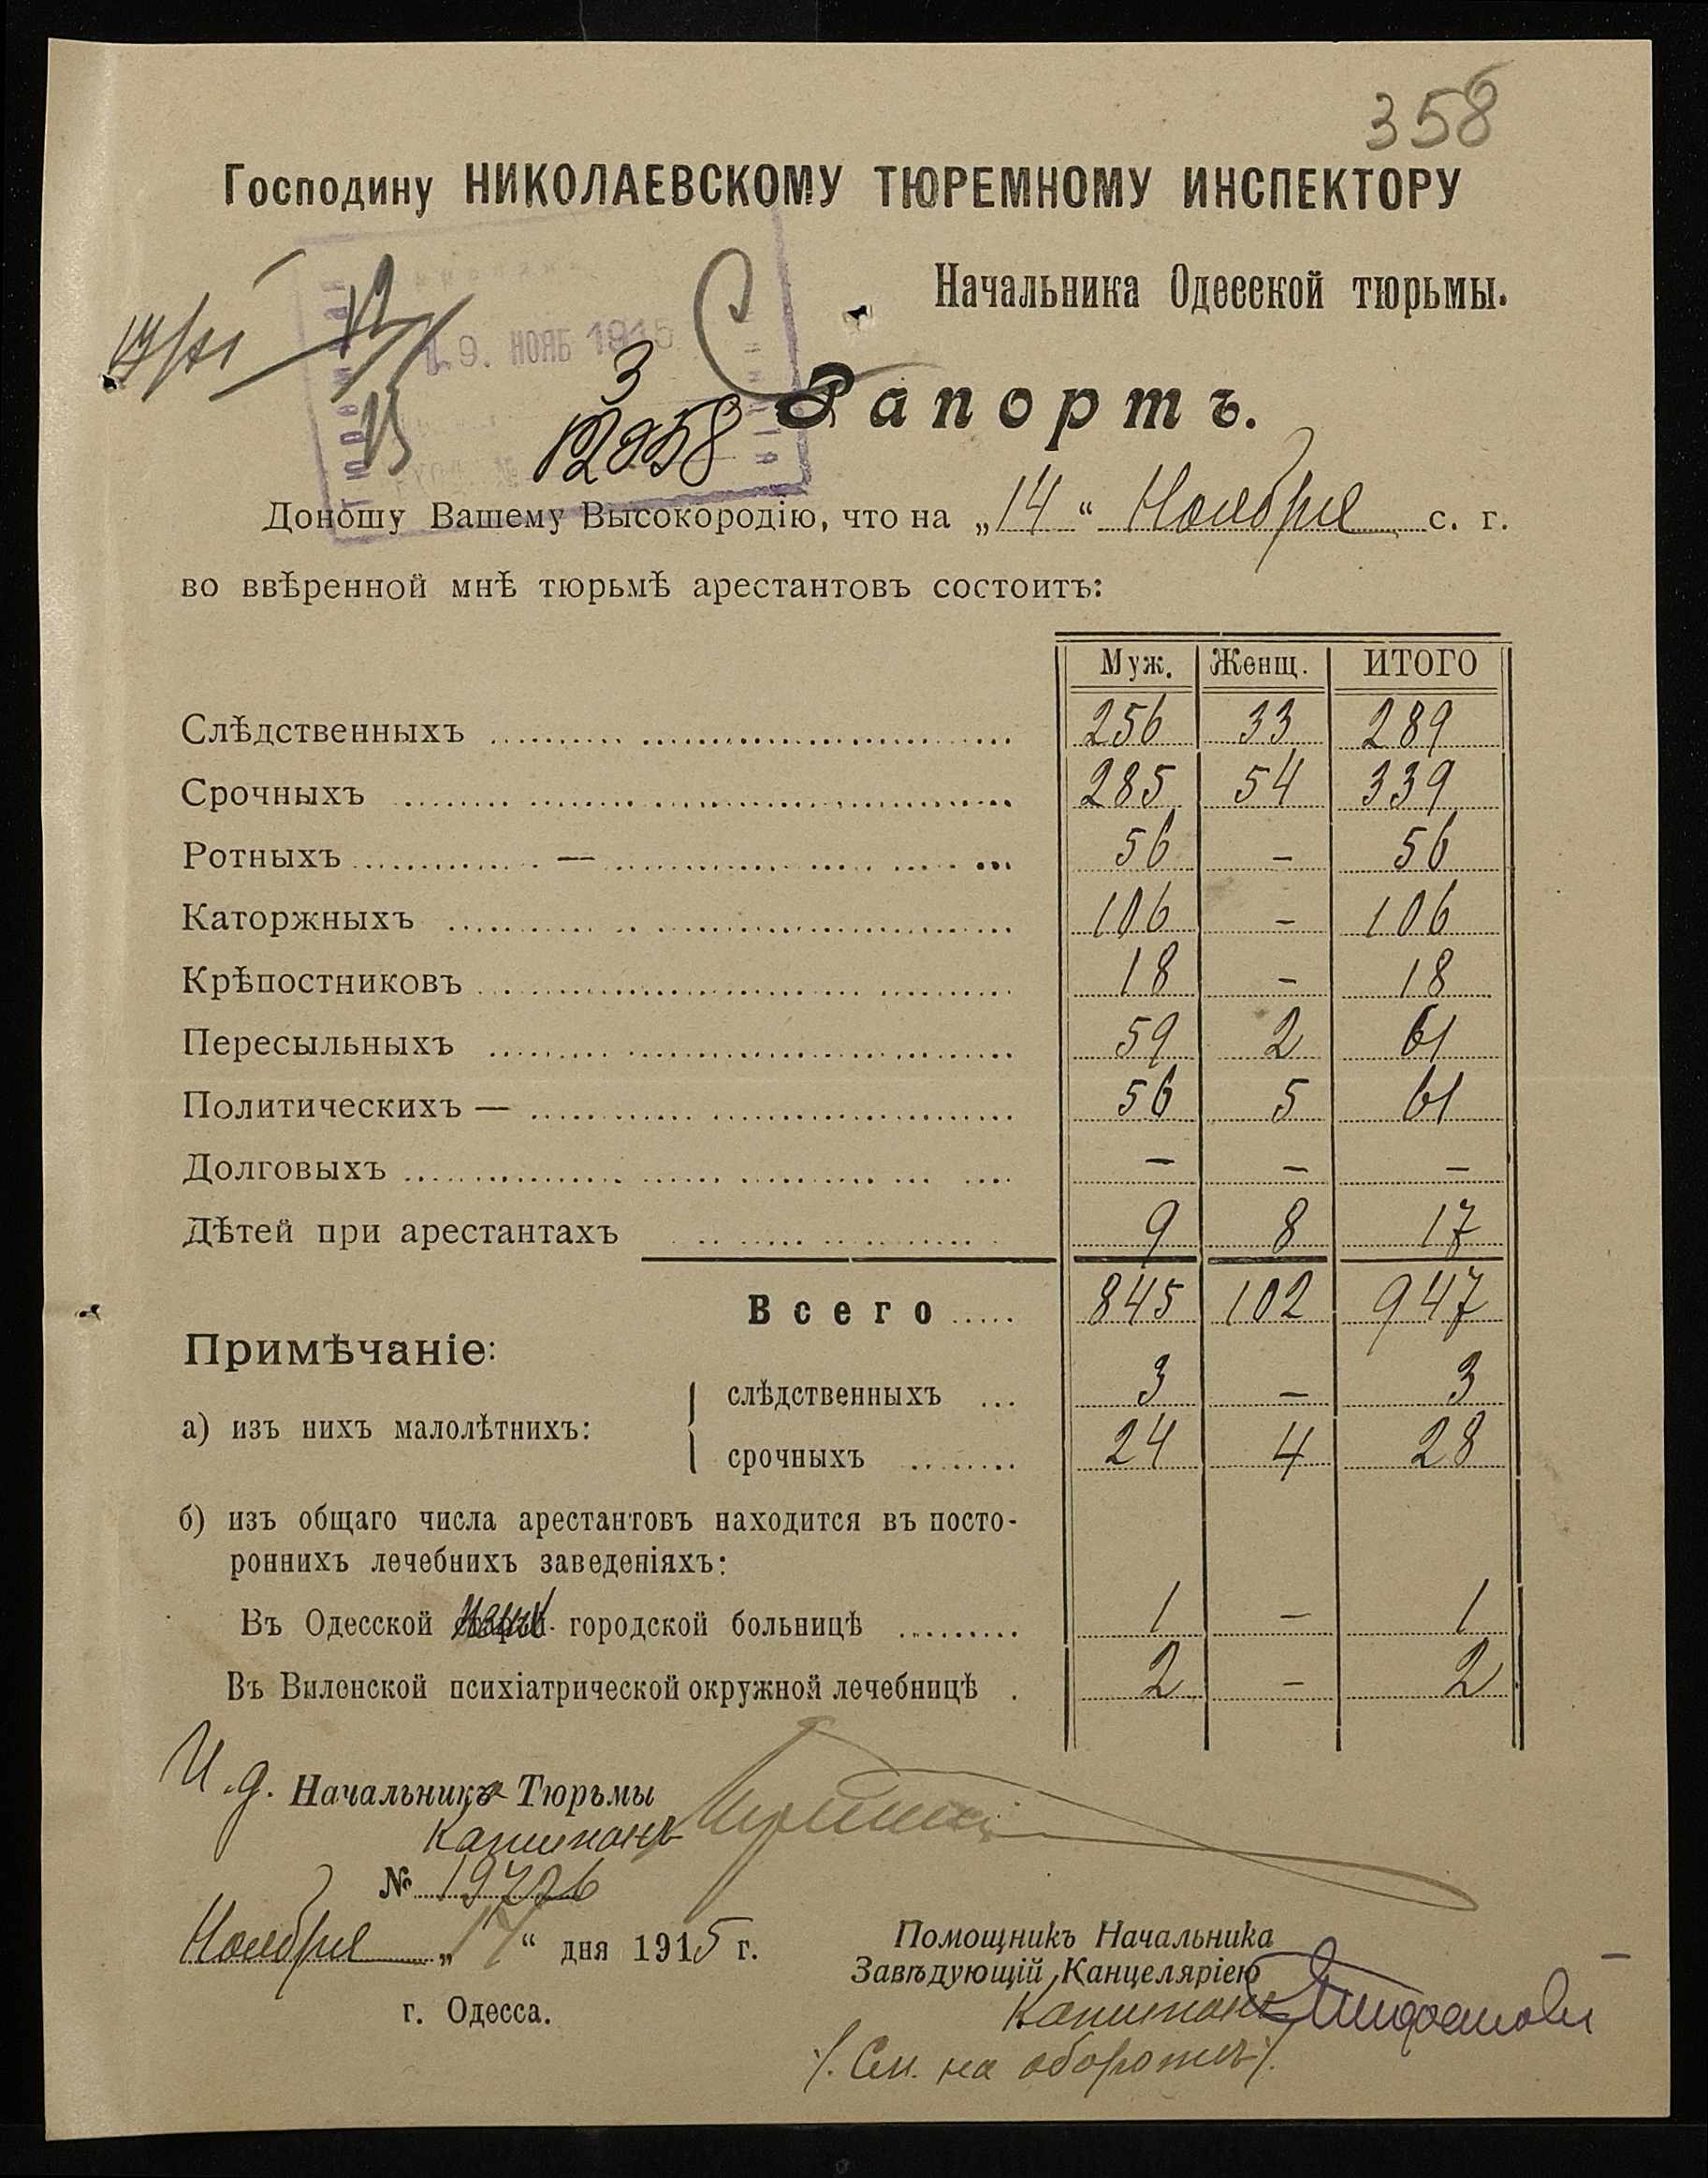 358
Господину НИКОЛАЕВСКОМУ ТЮРЕМНОМУ ИНСПЕКТОРУ
Начальника Одесской тюрьмы.
9. НОЯБ 1915
3
Рапортъ.
Доношу Вашему Высокородію, что на „14“ Ноября с. г.
во ввѣренной мнѣ тюрьмѣ арестантовъ состоитъ:
Муж. Женщ. ИТОГО
Слѣдственныхъ 256 33 289
Срочныхъ 285 54 339
Ротныхъ — 56 - 56
Каторжныхъ 106 - 106
Крѣпостниковъ 18 - 18
Пересыльныхъ 59 2 61
Политическихъ — 56 5 61
Долговыхъ - - -
Дѣтей при арестантахъ 9 8 17
Всего 845 102 947
Примѣчаніе:
а) изъ нихъ малолѣтнихъ:
слѣдственныхъ 3 - 3
срочныхъ 24 4 28
б) изъ общаго числа арестантовъ находится въ посто-
роннихъ лечебнихъ заведеніяхъ:
Въ Одесской городской больницѣ 1 - 1
Въ Виленской психіатрической окружной лечебницѣ 2 - 2
И.д. Начальника Тюрьмы
Капитанъ
№ 19726
Ноября „17“ дня 1915 г.
г. Одесса.
Помощникъ Начальника
Завѣдующій Канцеляріею
Капитанъ
/. См. на оборотѣ /.